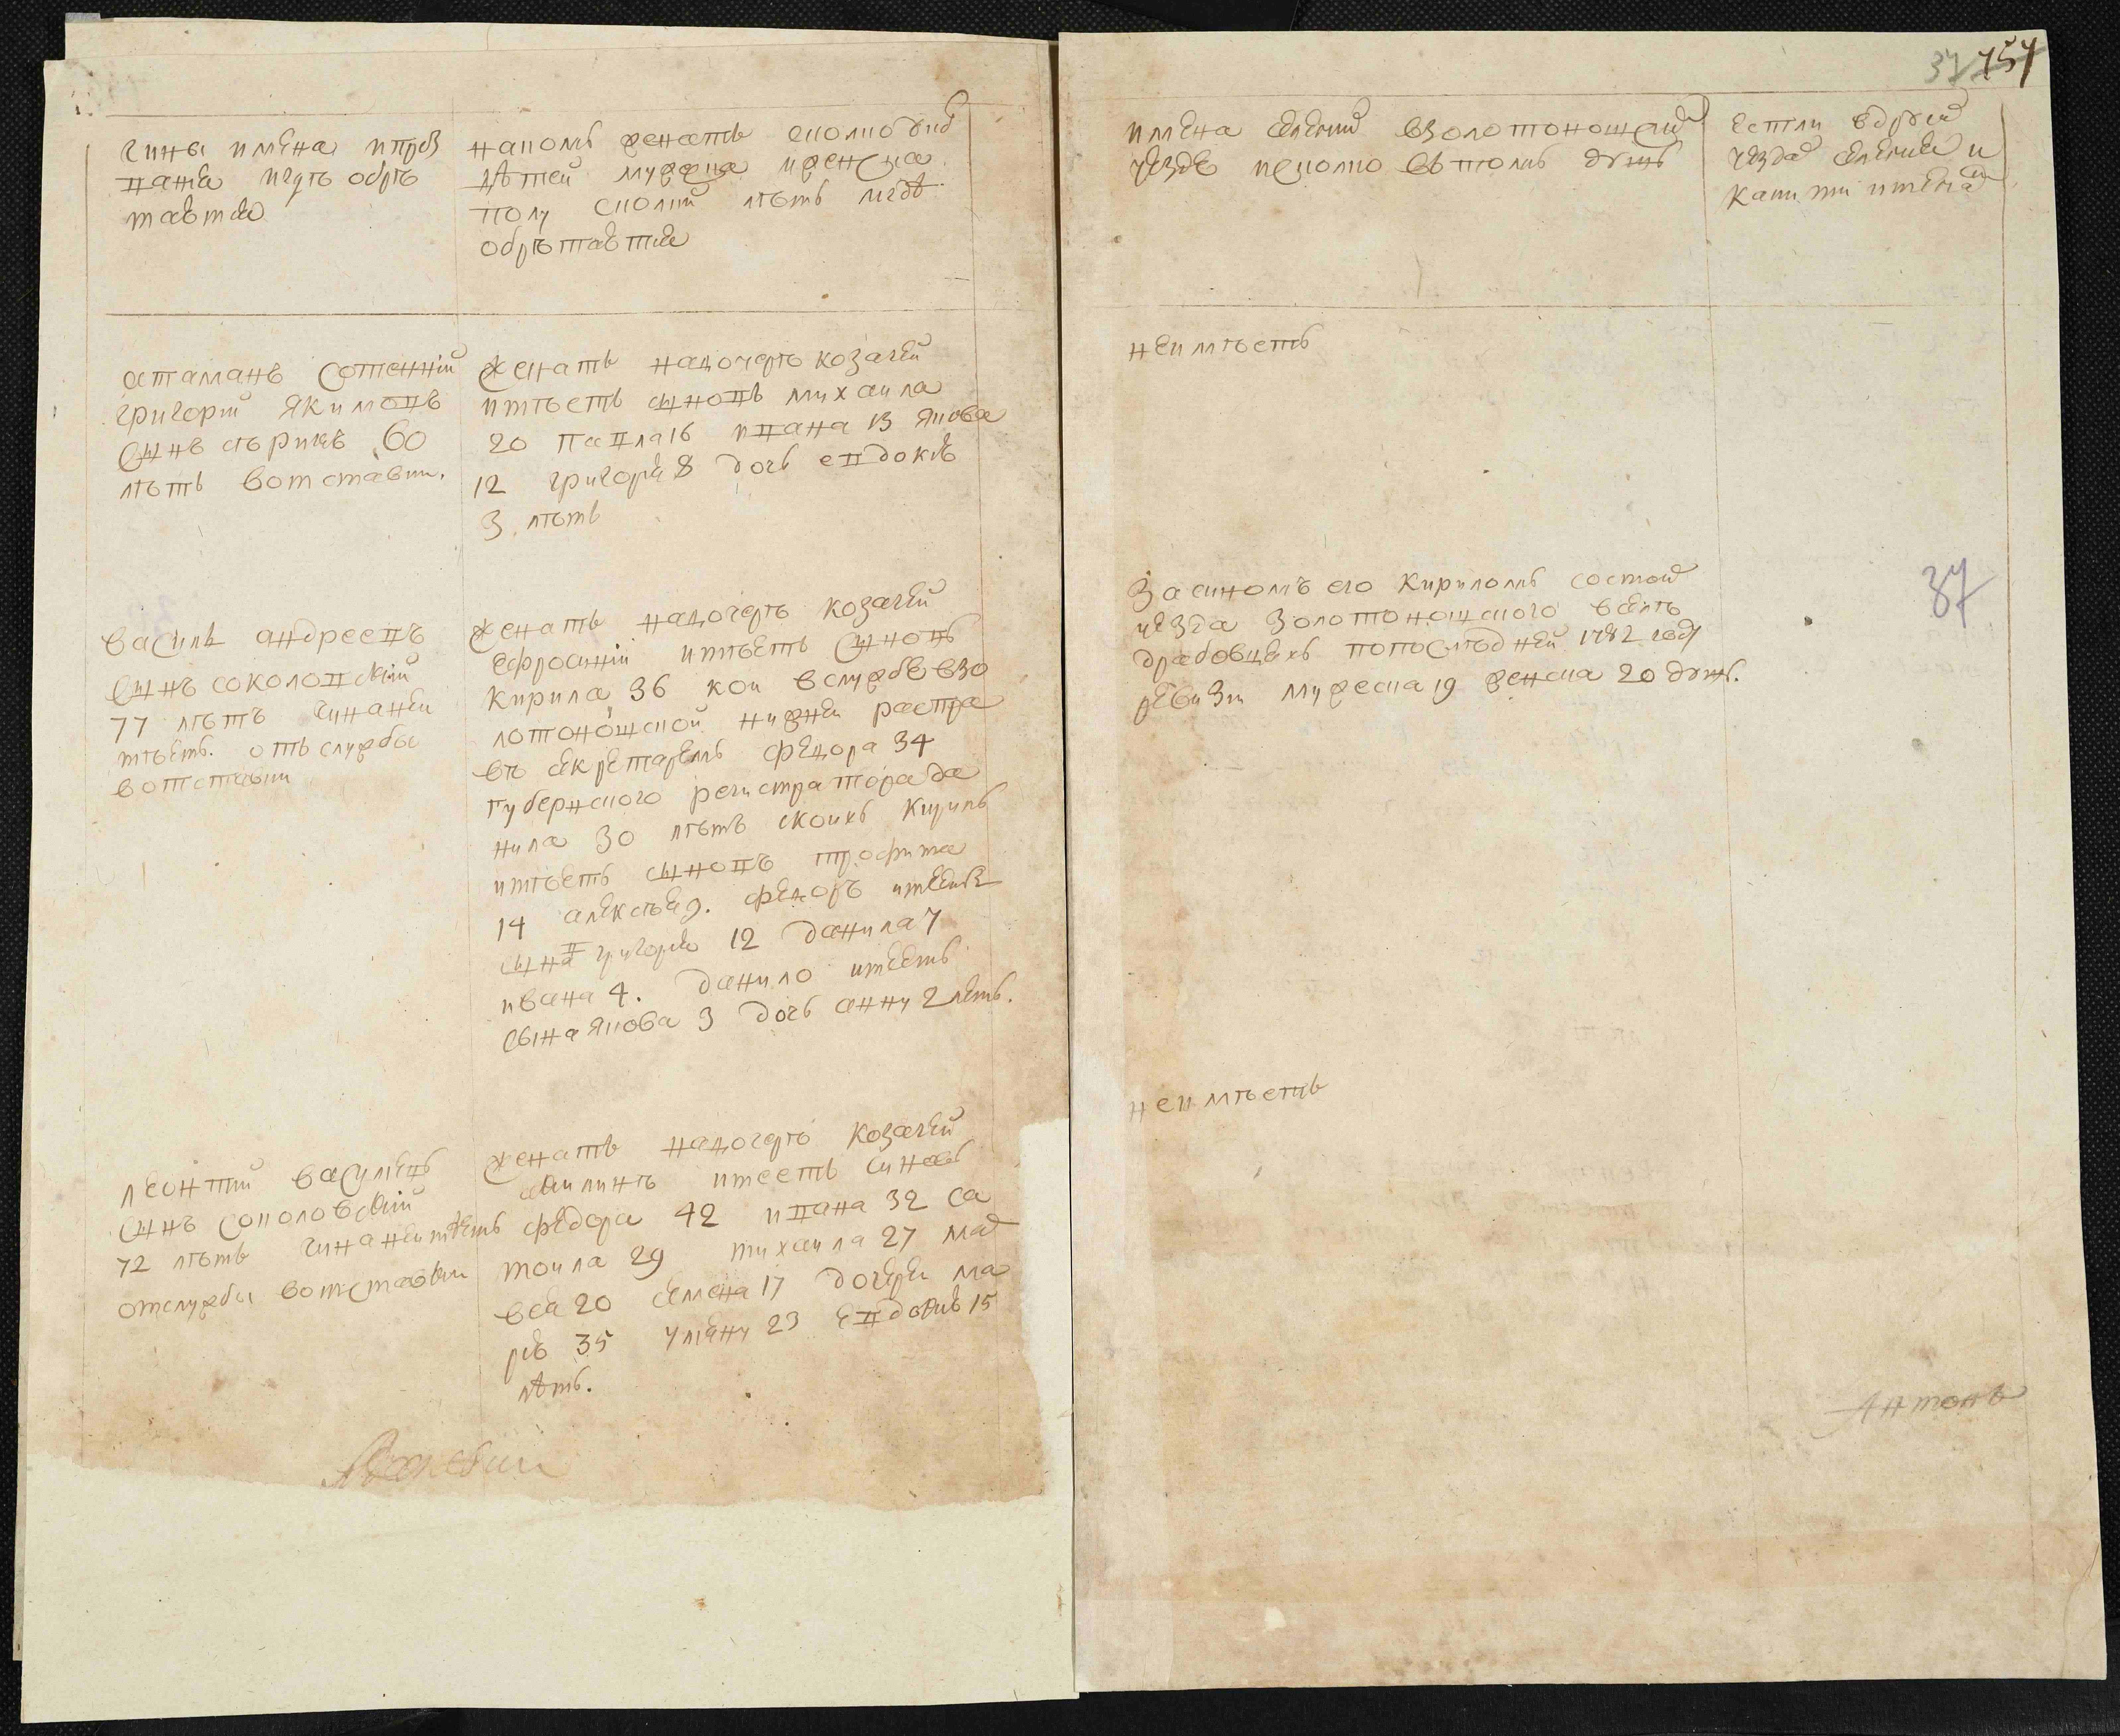 чины имена и проз
вания и гдѣ обрѣ
таются
на комъ женатъ сколко онъ
дѣтей мужеска и женска
полу сколки лѣтъ и гдѣ
обрѣтаются
атаманъ сотенній
григорій якимовъ
сынъ 60
лѣтъ вотставки.
женатъ надочерѣ козачей
имѣетъ сыновъ михаила
20 павла 16 ивана 13 якова
12 григорія 8 дочь евдокію
3 лѣтъ
василь андреевъ
сынъ соколовскій
77 лѣтъ чина неи
мѣетъ. отъ службы
вотставки
женатъ надочерѣ козачей
ефросиніи имѣетъ сыновъ
кирила 36 кои вслужбе взо
лотоношской нижней распра
въ секретаремъ федора 34
губернского регистратора да
нила 30 лѣтъ скоихъ кирилъ
имѣетъ сыновъ трофима
14 алексѣя 9. федоръ имеетъ
сынавъ григорію 12 данила 7
ивана 4. данило имеетъ
сына якова 3 дочь анну 2 летъ.
леонтий василіевъ
сынъ соколовскій
72 лѣтъ чина неимѣетъ
отслужбы вотставки
женатъ надочерѣ козачей
имеетъ синовъ
федора 42 ивана 32 са
мойла 29 михаила 27 мат
вея 20 семена 17 дочерей ма
рію 35 уліяну 23 евдокію 15
лѣтъ.
37 757
имена селений взолотоношском
уезде исколко вътомъ душъ
естли вдругом
уезда селения и
какими имена
неимѣетъ
За синомъ его кириломъ состой
уезда золотоношского вселѣ
драбовцахъ попослѣдней 1782 году
ревизи мужеска 19 женска 20 душъ.
37
неимѣетъ
Антонъ